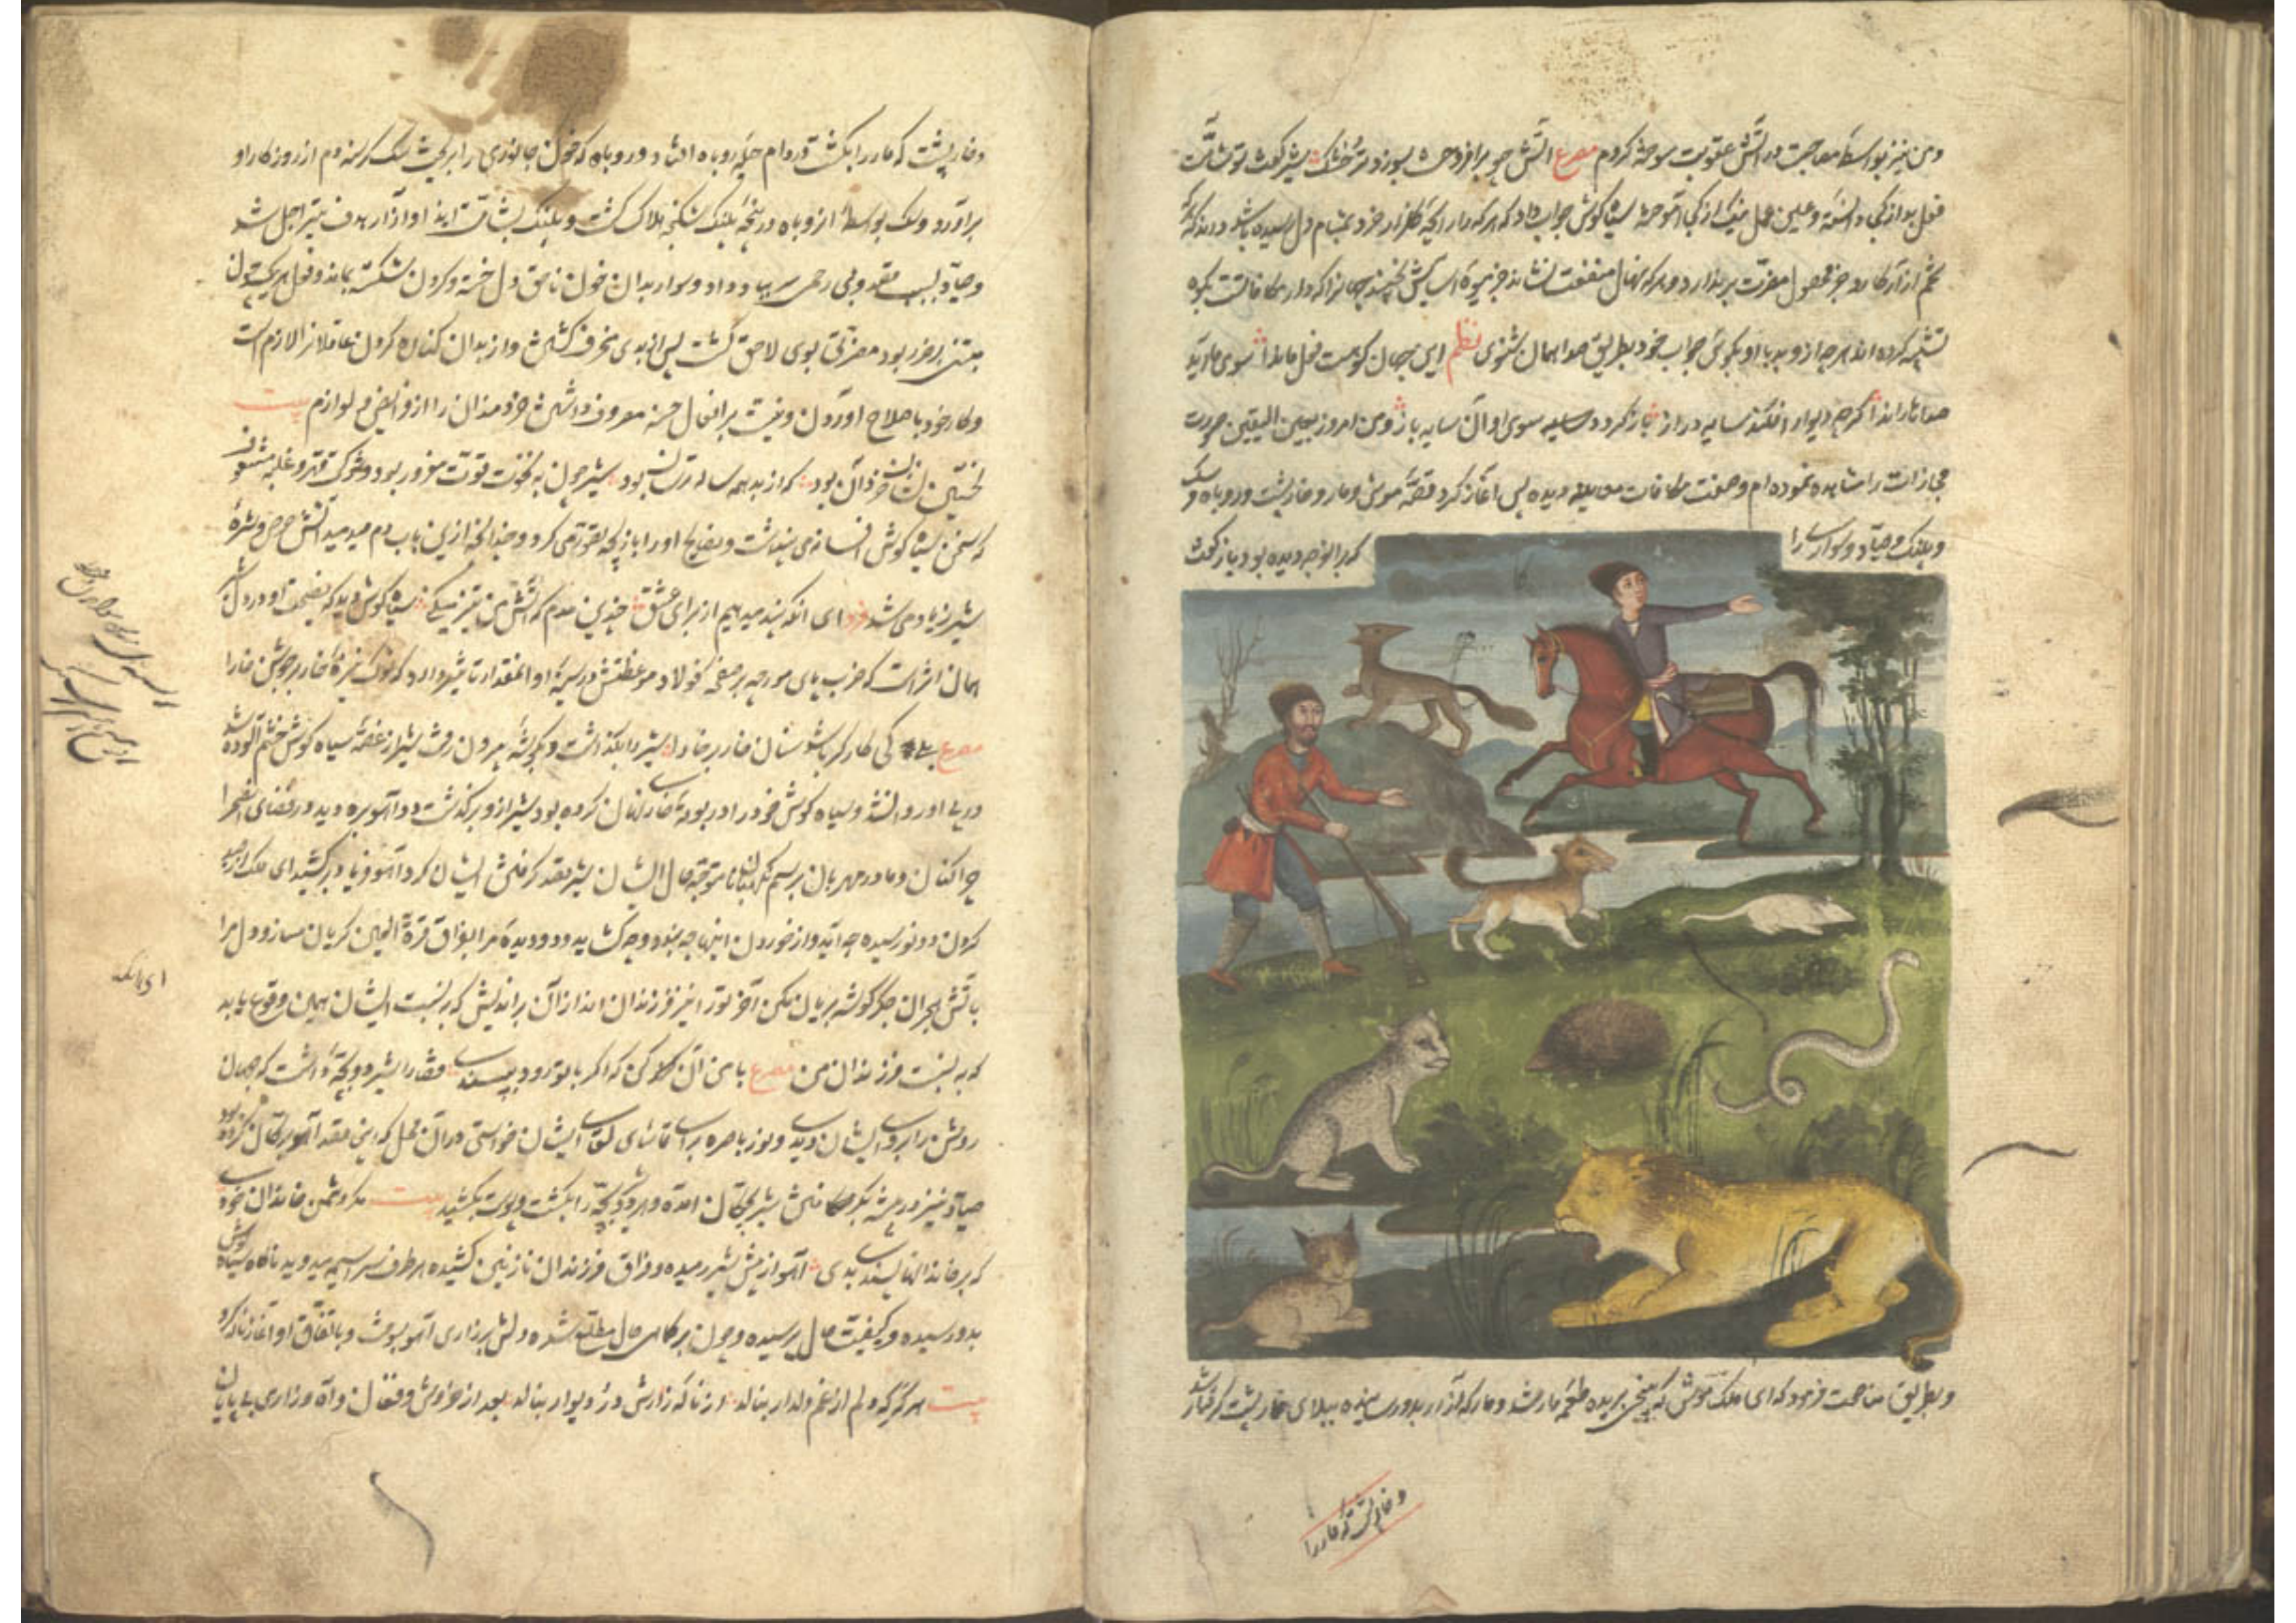 و من نیز بواسطه مصاحبت در آتش عقوبت سوخته کردم مصرع آتش چو برافروخت بسوزد تر و خشک شیر گفت تو شآمت
فعل بد از کجا دانسته و علم عمل نیک از کجا آموخته سیاه گوش جواب داد که هر که را رایحه گلزار خرد بمشام دل رسیده باشد داند که
تخم آزار کارد جز محصول مضرت برندارد و هر که نهال منفعت نشاند جز میوه آسایش نچیند جهانرا که دار مکافاتست بکوه
تشبیه کرده اند هر چه از و بد با او بگوئی جواب خود بطریق صدا همان شنوی نظم این جهان کوهست فعل ما ندا سوی ما آید
صداها را ندا گرچه دیوار افکند سایه دراز باز گردد سوی او آن سایه باز و من امروز بعین الیقین صورت
مجازات را مشاهده نموده ام و صفت مکافات معاینه دیده پس آغاز کرد قصه موش و مار و خارپشت و روباه و سگ
و پلنگ و صیاد و سوار را
که برانوجه دیده بود بازگفت
و بطریق مناصحت فرمود که ای ملک موش که بیخ بریده طعمه مار شد و مار که آزار بدو رسانیده ببلای خارپشت گرفتار شد
و خارپشت که مار را
و خارپشت که مار را بکشت در دام حیله روباه افتاد و روباه که خون جانوری را بریخت سگ گرسنه دم از روزگار او
برآورد و سگ بواسطه آزار روباه در پنجه پلنگ شکنجه هلاک گشت و پلنگ بشآمت ایذا و آزار هدف تیر اجل شد
و صیاد بسبب بی رحمی سر بباد داد و سوار بدان خون ناحق دل خسته و گردن شکسته بماند و فعل هر یک چون
مبتنی بر ضرر بود مضرتی بوی لاحق گشت پس از بدی منحرف گشتن و از بدان کناره کردن عاقلانرا لازم است
و کار خود باصلاح آوردن و نیت بر افعال حسنه معروف داشتن خردمندان را از فرایض و لوازم بیت
نخستین نشان خرد آن بود که از بد همه ساله ترسان بود شیر چون به قوت مغرور بود و بشوکت قهر و غلبه مشعوف
که سخن سیاه گوش افسانه می پنداشت و نصایح او را بازیچه تصور می کرد و چندانکه ازین باب دم میدمید آتش حرص و شره
شیر زیاد می شد فرد ای آنکه پند میدهیم از برای عشق چندین مدم که آتش من تیز میکنی سیاه گوش دید که نصیحت او در دل شیر
همان اثر است که ضرب پای مورچه بر صفحه فولاد و موعظتش در سینه او آنمقدار تاثیر دارد که نوک نیزه خار بر جوشن خارا
مصرع بلی کی کارگر باشد سنان خار بر خارا شیر را بگذاشت و بگوشه بیرون رفت شیر از غصه سیاه گوش خشم آلوده شد
در پی او روان شد و سیاه گوش خود را در بوته خار پنهان کرده بود شیر ازو برگذشت دو آهو بره دید در فضای صحرا
چراکنان و مادر مهربان برسم نگهبانان متوجه حال ایشان شیر قصد گرفتن ایشان کرد آهو فریاد برکشید ای ملک از صید
کردن دو نو رسیده چه آید و از خوردن اینها چه بندد و چه گشاید و دو دیده مرا بفراق قرة العین گریان مساز و دل مرا
بآتش هجران جگرگوشه بریان مکن آخر تو را نیز فرزندان اند از آن براندیش که نسبت ایشان همین وقوع یابد
که به نسبت فرزندان من مصرع با من آن کن که اگر با تو رود بپسندی قضا را شیر دو بچه داشت که جهان
روشن را بروی ایشان دیدی و نور باصره برای تماشای لقای ایشان خواستی در آن محل که این قصد آهو برگان کرده بود
صیاد نیز در بیشه بگرفتن شیر بچگان آمده و هر دو بچه را بکشت و پوست بکشید بیت مکن دشمن خاندان خودی
که بر خاندانها پسندی بدی آهو از پیش شیر رمیده و فراق فرزندان نازنین کشیده هر طرف سراسیمه میدوید ناگاه سیاه گوش
بدو رسیده و کیفیت حال پرسیده و چون بر کماهی حال مطلع شده دلش بر زاری آهو بسوخت و باتفاق او آغاز ناله کرد
بیت هر گه که دلم از غم دلدار بنالد از ناله زارش در و دیوار بنالد بعد از خروش و فغان و آه و زاری بی پایان